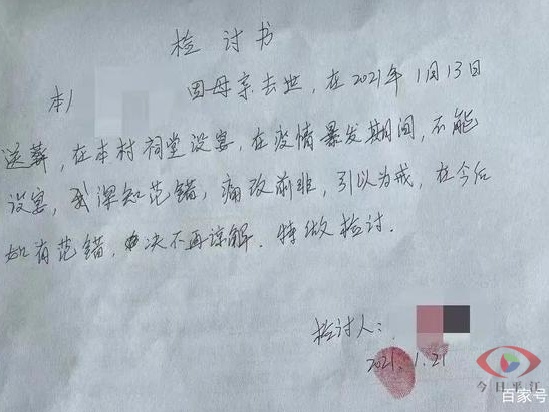 检讨书
本人
因母亲去世,在2021年1月13日
送葬,在本村祠堂设宴,在疫情暴发期间,不能
设宴,我深知范错,痛改前非,引以为戒,在今后
如有范错,决不再谅解.特做检讨.
检讨人:
2021.1.21
今日平江
百家号